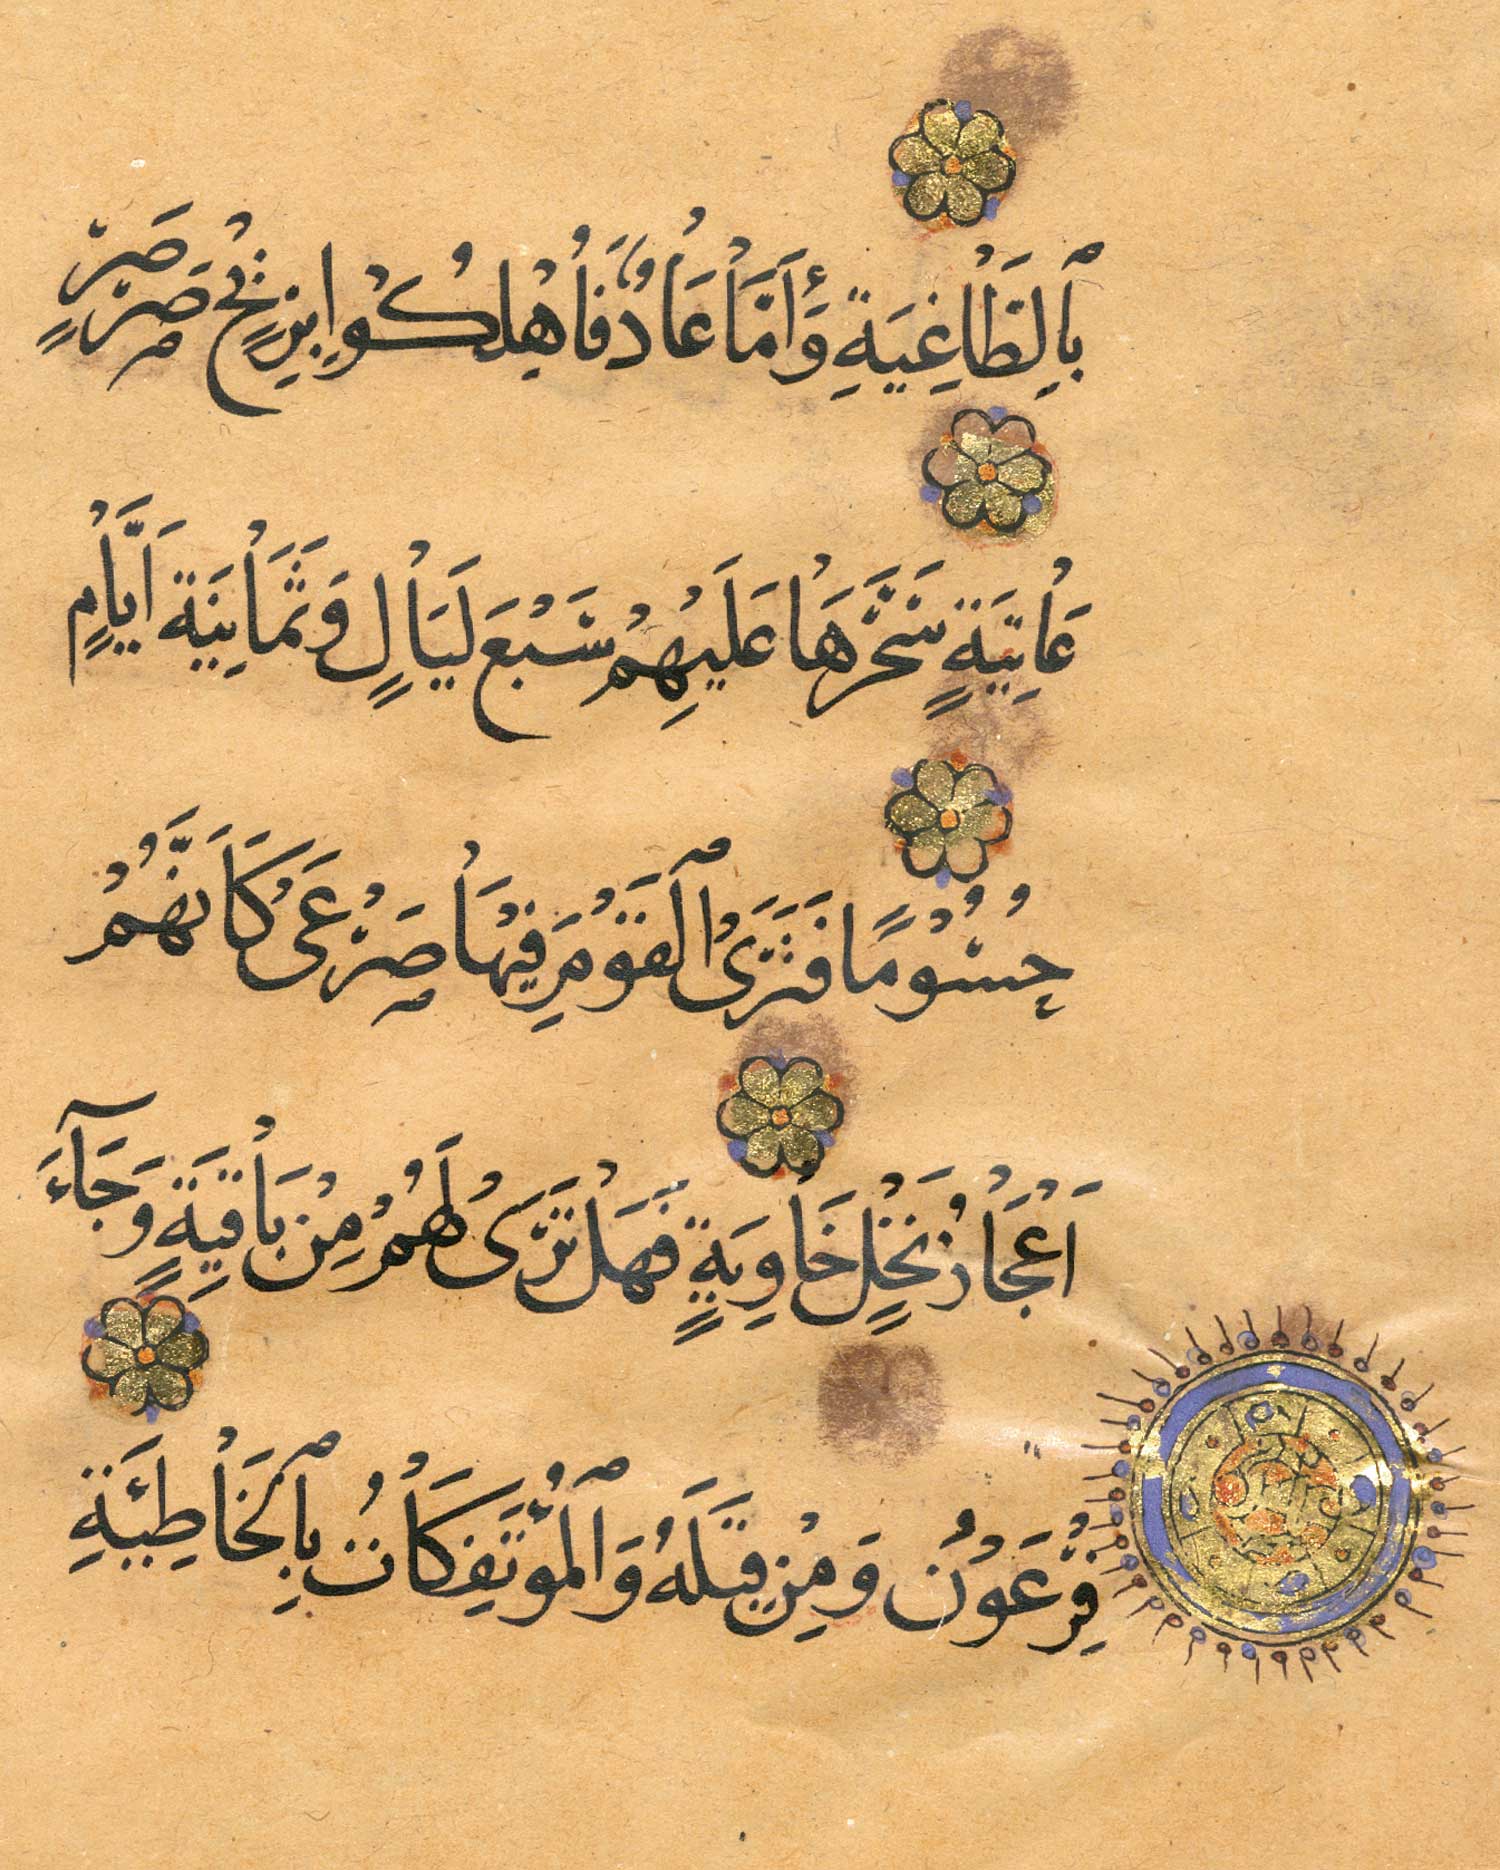 بِالطَّاغِيَةِ وَأَمَّا عَادٌ فَأُهْلِكُوا بِرِيحٍ صَرْصَرٍ
عَاتِيَةٍ سَخَّرَهَا عَلَيْهِمْ سَبْعَ لَيَالٍ وَثَمَانِيَةَ أَيَّامٍ
حُسُومًا فَتَرَى الْقَوْمَ فِيهَا صَرْعَى كَأَنَّهُمْ
أَعْجَازُ نَخْلٍ خَاوِيَةٍ فَهَلْ تَرَى لَهُمْ مِنْ بَاقِيَةٍ وَجَآءَ
فِرْعَوْنُ وَمَنْ قَبْلَهُ وَالْمُؤْتَفِكَاتُ بِالْخَاطِئَةِ